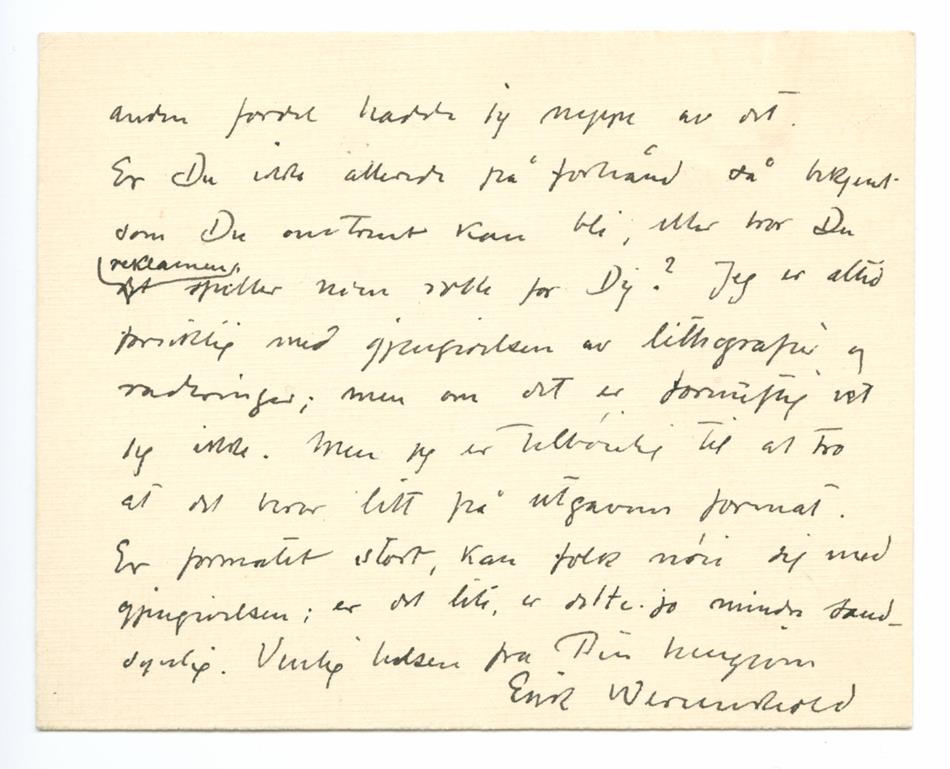 anden fordel hadde jeg neppe av det.
Er Du ikke allerede på forhånd så bekjent
som Du omtrent kan bli, eller tror Du
reklamen
det spiller nien rolle for Dig? Jeg er altid
forsiktig med gjengivelsen av lithografier og
raderinger; men om det er fornuftig vet
jeg ikke. Men jeg er tilbøielig til at tro
at det beror litt på utgavens format.
Er formatet stort, kan folk nøie sig med
gjengivelsen; er det lite, er dette jo mindre sand-
synlig. Venlig hilsen fra Din hengivne
Erik Werenskiold